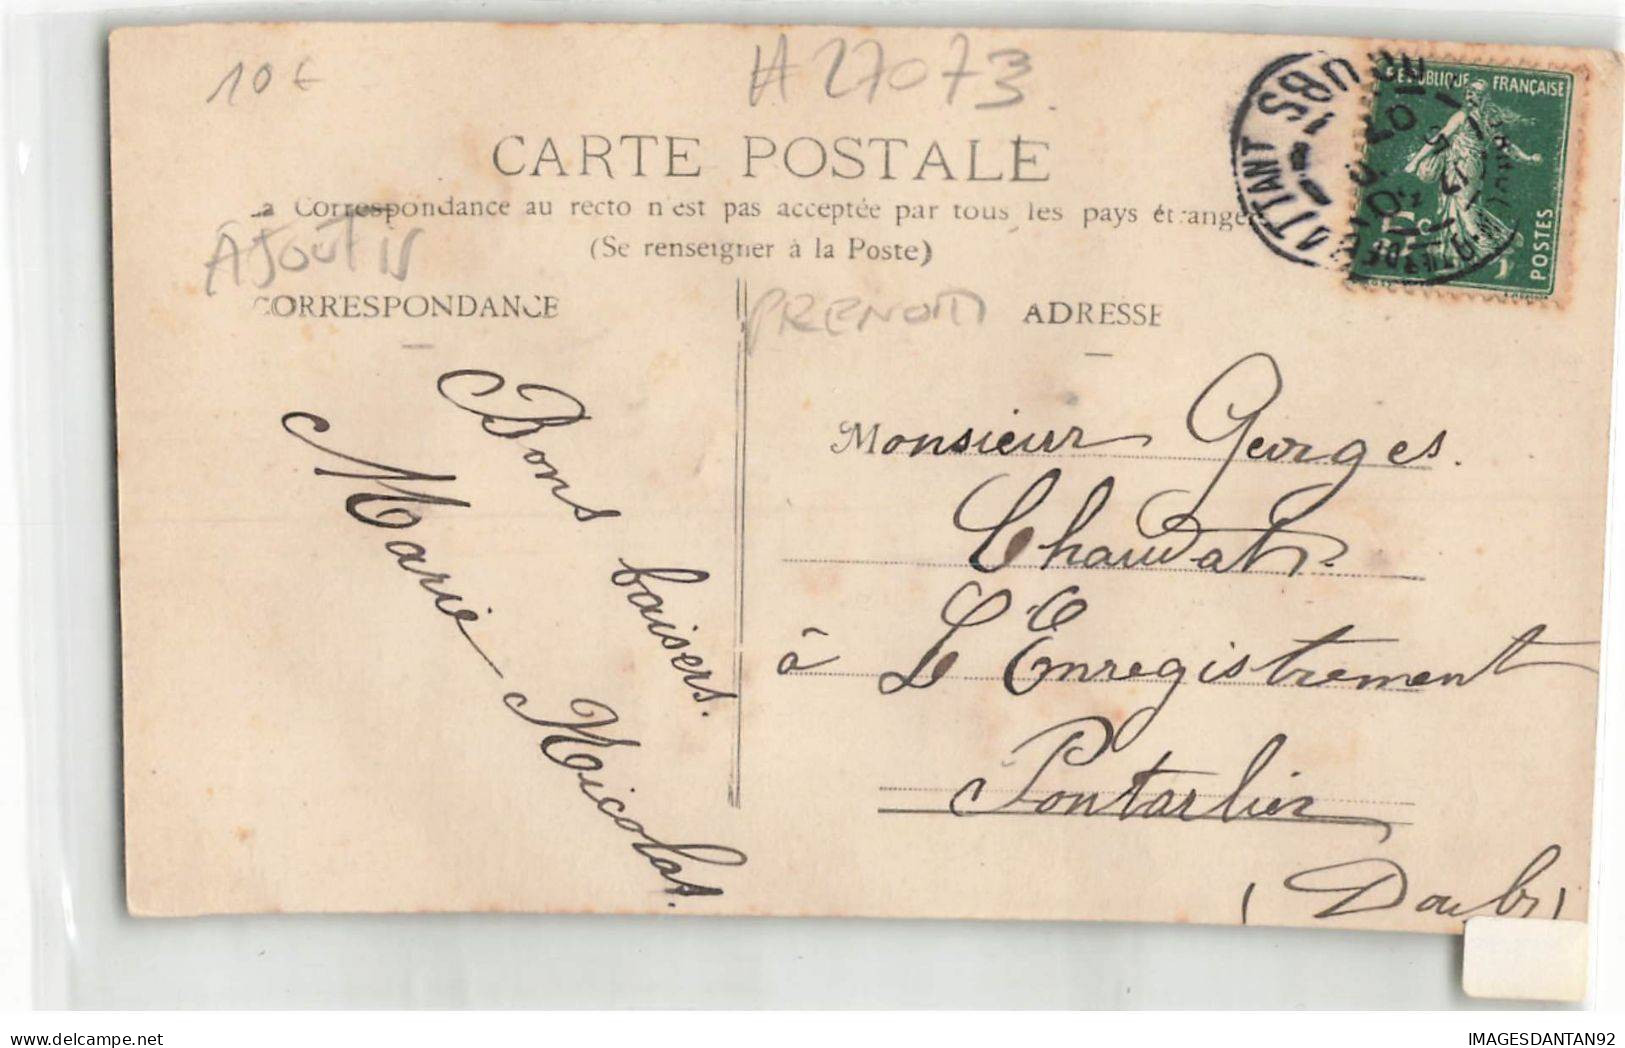 10 €
A27073
CARTE POSTALE
La Correspondance au recto n'est pas acceptée par tous les pays étrangers
(Se renseigner à la Poste)
AJOUTIS
CORRESPONDANCE
Bons baisers.
Marie Nicolas.
PRENOM
ADRESSE
Monsieur Georges
à L'Enregistrement
Pontarlier
(Doubs)
REPUBLIQUE FRANÇAISE
POSTES
5c
IMAGESDANTAN92